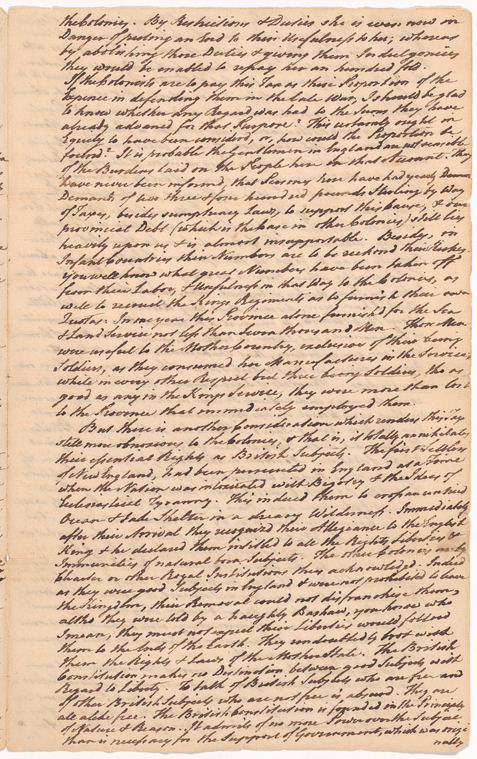 the Colonies. By Restrictions & Duties she is even now in
Danger of putting an End to their Usefulness to her; whereas
by abolishing those Duties & giving them Indulgencies
they would be enabled to repay her an hundred fold.
If the Colonists are to pay this Tax as their Proportion of the
Expence in defending them in the late War, I should be glad
to know whether any Regard was had to the Sums they have
already advanced for that Purpose? This certainly ought in
Equity to have been considerd, or how could the Proportion be
found? It is probable the Gentlemen in England are not sensible
of the Burdens laid on the People here in that Account. They
have never been informd, that Persons here have had yearly
Demands of two three & four hundred pounds Sterling by Way
of Taxes, besides sumptuary Laws, to support this Cause, & our
provincial Debt (which is the Case in other Colonies) still lies
heavily upon us & is almost insupportable. Besides, in
Infant Countries their Numbers are to be reckond their
you well know what great Numbers have been taken off
from their Labor, & Usefulness in that Way to the Colonies, as
well to recruit the Kings Regiments as to furnish their own
Quotas. In one year this Province alone furnish'd for the Sea
& Land Service not less than Seven thousand Men. These Men
were useful to the Mother Country, exclusive of their being
Soldiers, as they consumed her Manufactures in the Service,
while in every other Respect but their being Soldiers, tho as
good as any in the Kings Service, they were more than lost
to the Province that immediately employed them.
But there is another Consideration which renders this Tax
still more obnoxious to the Colonies, & that is, it totally annihilates
their essential Rights as British Subjects. The first Settlers
of New England, had been persecuted in England at a Time
when the Nation was intoxicated with Bigotry & the Ideas of
Ecclesiastical Tyranny. This induced them to cross an untried
Ocean & take Shelter in a dreary Wilderness. Immediately
after their Arrival they recognizd their Allegiance to the English
King & he declared them intitled to all the Rights, Liberties &
Immunities of natural born Subjects. The other Colonies are by
Charter or other Royal Institution thus acknowledgd. Indeed
as they were good Subjects in England & were not prohibited to leave
the Kingdom, their Removal could not disfranchise them,
altho they were told by a haughty Bashaw, you know who
I mean, they must not expect their Liberties would follow
them to the Ends of the Earth. They undoubtedly brot with
them the Rights & Laws of the Mother State. The British
Constitution makes no Distinction between good Subjects with
Regard to Liberty. To talk of British Subjects who are free and
of other British Subjects who are not free is absurd. They are
all alike free. The British Constitution is founded in the Principles
of Nature & Reason. It admits of no more Power over the Subject
than is necessary for the Support of Government, which was origi
nally